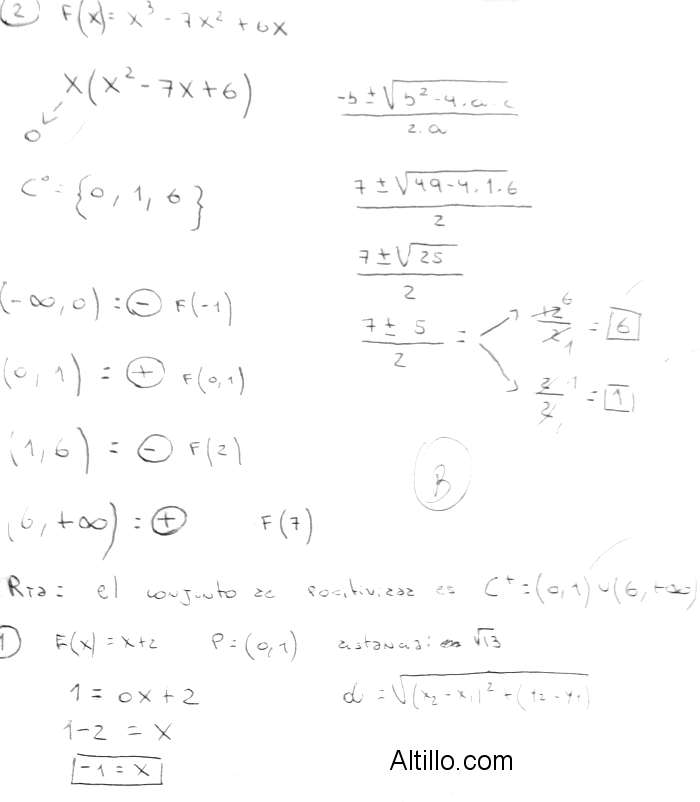 2 F(x)= x³ - 7x² + 6x
x(x² - 7x + 6)
0
-b ± √b² - 4.a.c
2.a
C° = {0, 1, 6}
7 ± √49 - 4.1.6
2
7 ± √25
2
(-∞, 0) = - F(-1)
7 ± 5 =
2
12 6 = 6
2 1
(0, 1) = + F(0,1)
2 1 = 1
2 1
(1, 6) = - F(2)
B
(6, +∞) = + F(7)
Rta: el conjunto de positividad es C⁺ = (0,1) ∪ (6, +∞)
1 F(x) = x+2 P = (0,1) distancia: √13
1 = 0x + 2
d = √(x₂ - x₁)² + (y₂ - y₁
1-2 = x
-1 = x
Altillo.com